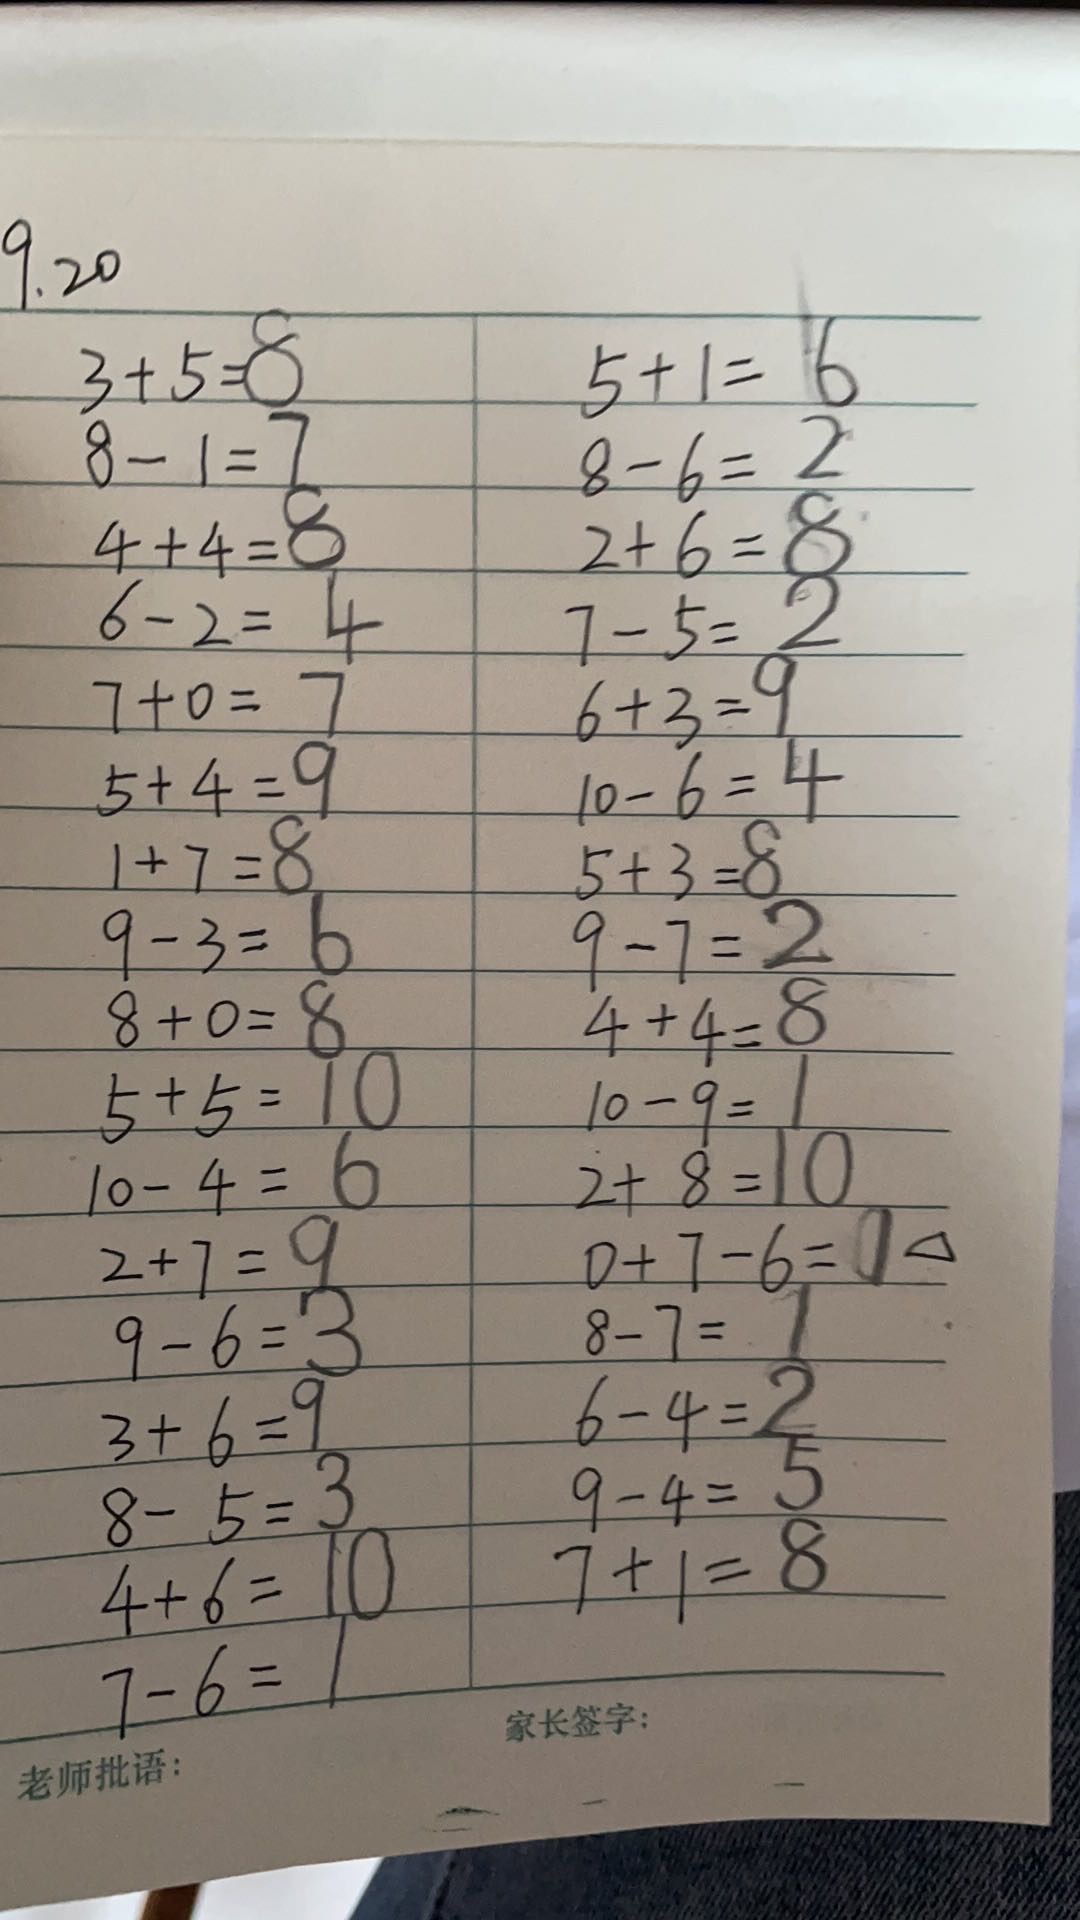 9.20
3+5=8
8-1=7
4+4=8
6-2=4
7+0=7
5+4=9
1+7=8
9-3=6
8+0=8
5+5=10
10-4=6
2+7=9
9-6=3
3+6=9
8-5=3
4+6=10
7-6=1
5+1=6
8-6=2
2+6=8
7-5=2
6+3=9
10-6=4
5+3=8
9-7=2
4+4=8
10-9=1
2+8=10
0+7-6=1
8-7=1
6-4=2
9-4=5
7+1=8
老师批语：
家长签字：